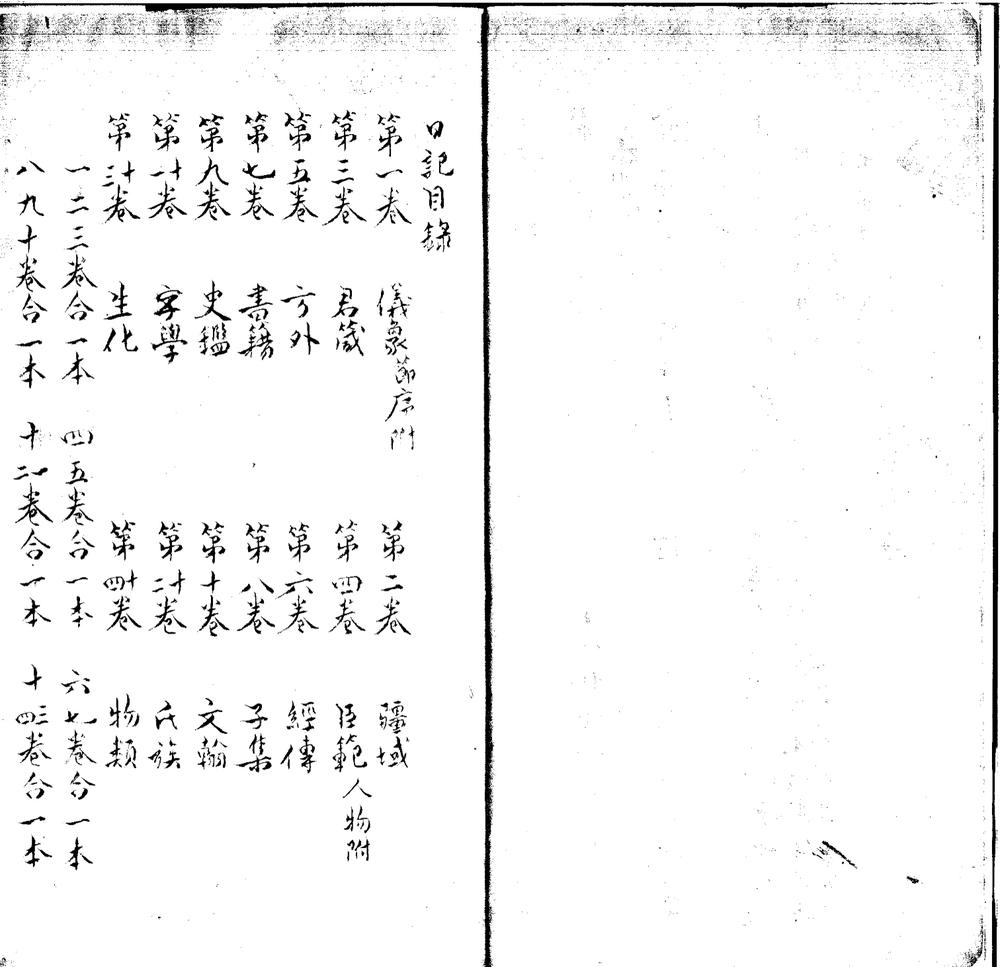 日記目錄
第一卷 儀象節序附 第二卷 疆域
第三卷 君箴 第四卷 臣範人物附
第五卷 方外 第六卷 經傳
第七卷 書籍 第八卷 子集
第九卷 史鑑 第十卷 文翰
第十一卷 字學 第十二卷 氏族
第十三卷 生化 第十四卷 物類
一二三卷合一本 四五卷合一本 六七卷合一本
八九十卷合一本 十一二卷合一本 十三四卷合一本